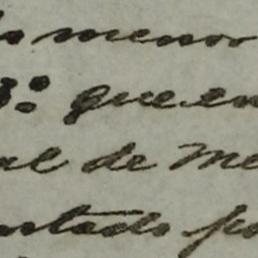 lo menor
3º que en
al de Me
ntado po